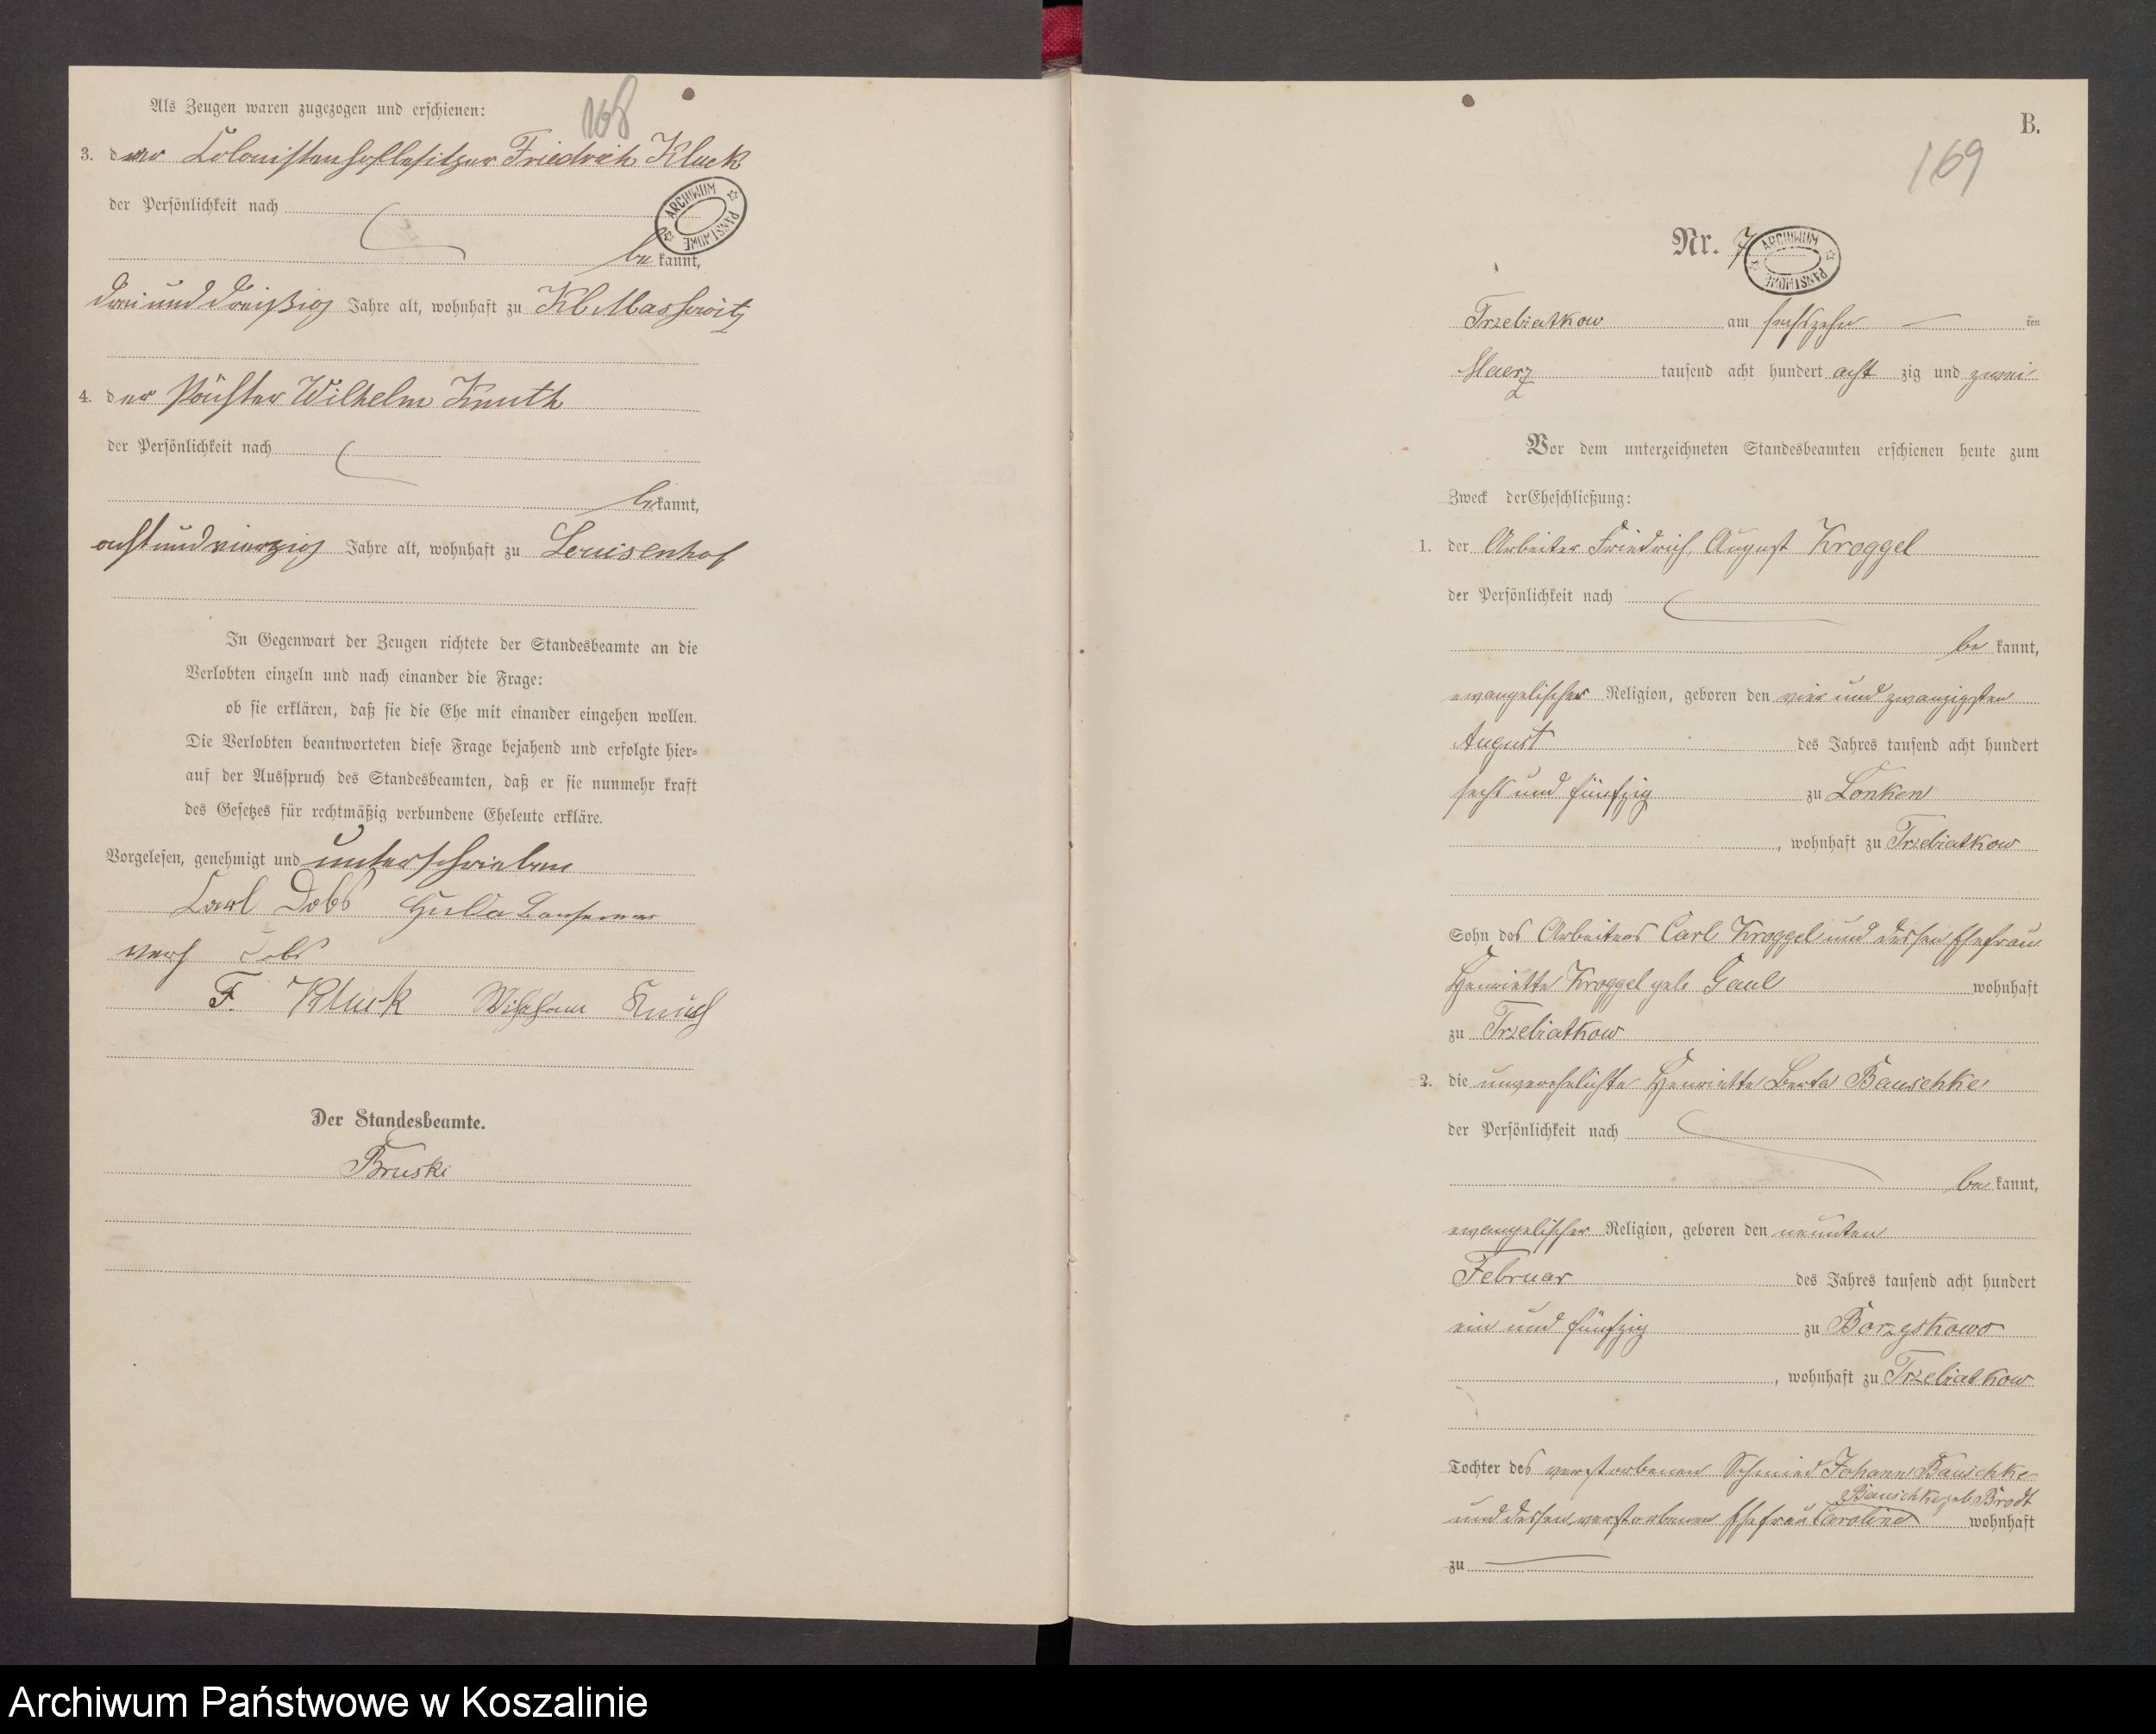 168
Als Zeugen waren zugezogen und erschienen:
3. der Colonistenhofbesitzer Friedrich Kluck
der Persönlichkeit nach
be kannt,
drei und dreißig Jahre alt, wohnhaft zu Kl Massowitz
4. der Förster Wilhelm Knuth
der Persönlichkeit nach
bekannt,
acht und vierzig Jahre alt, wohnhaft zu Louisenhof
In Gegenwart der Zeugen richtete der Standesbeamte an die
Verlobten einzeln und nach einander die Frage:
ob sie erklären, daß sie die Ehe mit einander eingehen wollen.
Die Verlobten beantworteten diese Frage bejahend und erfolgte hier-
auf der Ausspruch des Standesbeamten, daß er sie nunmehr kraft
des Gesetzes für rechtmäßig verbundene Eheleute erkläre.
Vorgelesen, genehmigt und unterschrieben
Carl Dobs Hulda
Dobs
F. Kluck Wilhelm Knuth
Der Standesbeamte.
Bruski
ARCHIWUM PAŃSTWOWE
B.
169
Nr. 7
ARCHIWUM PAŃSTWOWE
Trzebiatkow am sechszehn ten
Maerz tausend acht hundert acht zig und zwei
Vor dem unterzeichneten Standesbeamten erschienen heute zum
Zweck der Eheschließung:
1. der Arbeiter Friedrich August Kroggel
der Persönlichkeit nach
be kannt,
evangelischer Religion, geboren den vier und zwanzigsten
August des Jahres tausend acht hundert
sechs und fünfzig zu Lonken
, wohnhaft zu Trzebiatkow
Sohn des Arbeiters Carl Kroggel und dessen Ehefrau
Henriette Kroggel geb Gaul wohnhaft
zu Trzebiatkow
2. die unverehelichte Henriette Berta Bauschke
der Persönlichkeit nach
be kannt,
evangelischer Religion, geboren den neunten
Februar des Jahres tausend acht hundert
ein und fünfzig zu Borzyskowo
, wohnhaft zu Trzebiatkow
Tochter des verstorbenen Schmied Johann Bauschke
Bauschke geb Brodt
und dessen verstorbenen Ehefrau Caroline wohnhaft
zu
Archiwum Państwowe w Koszalinie